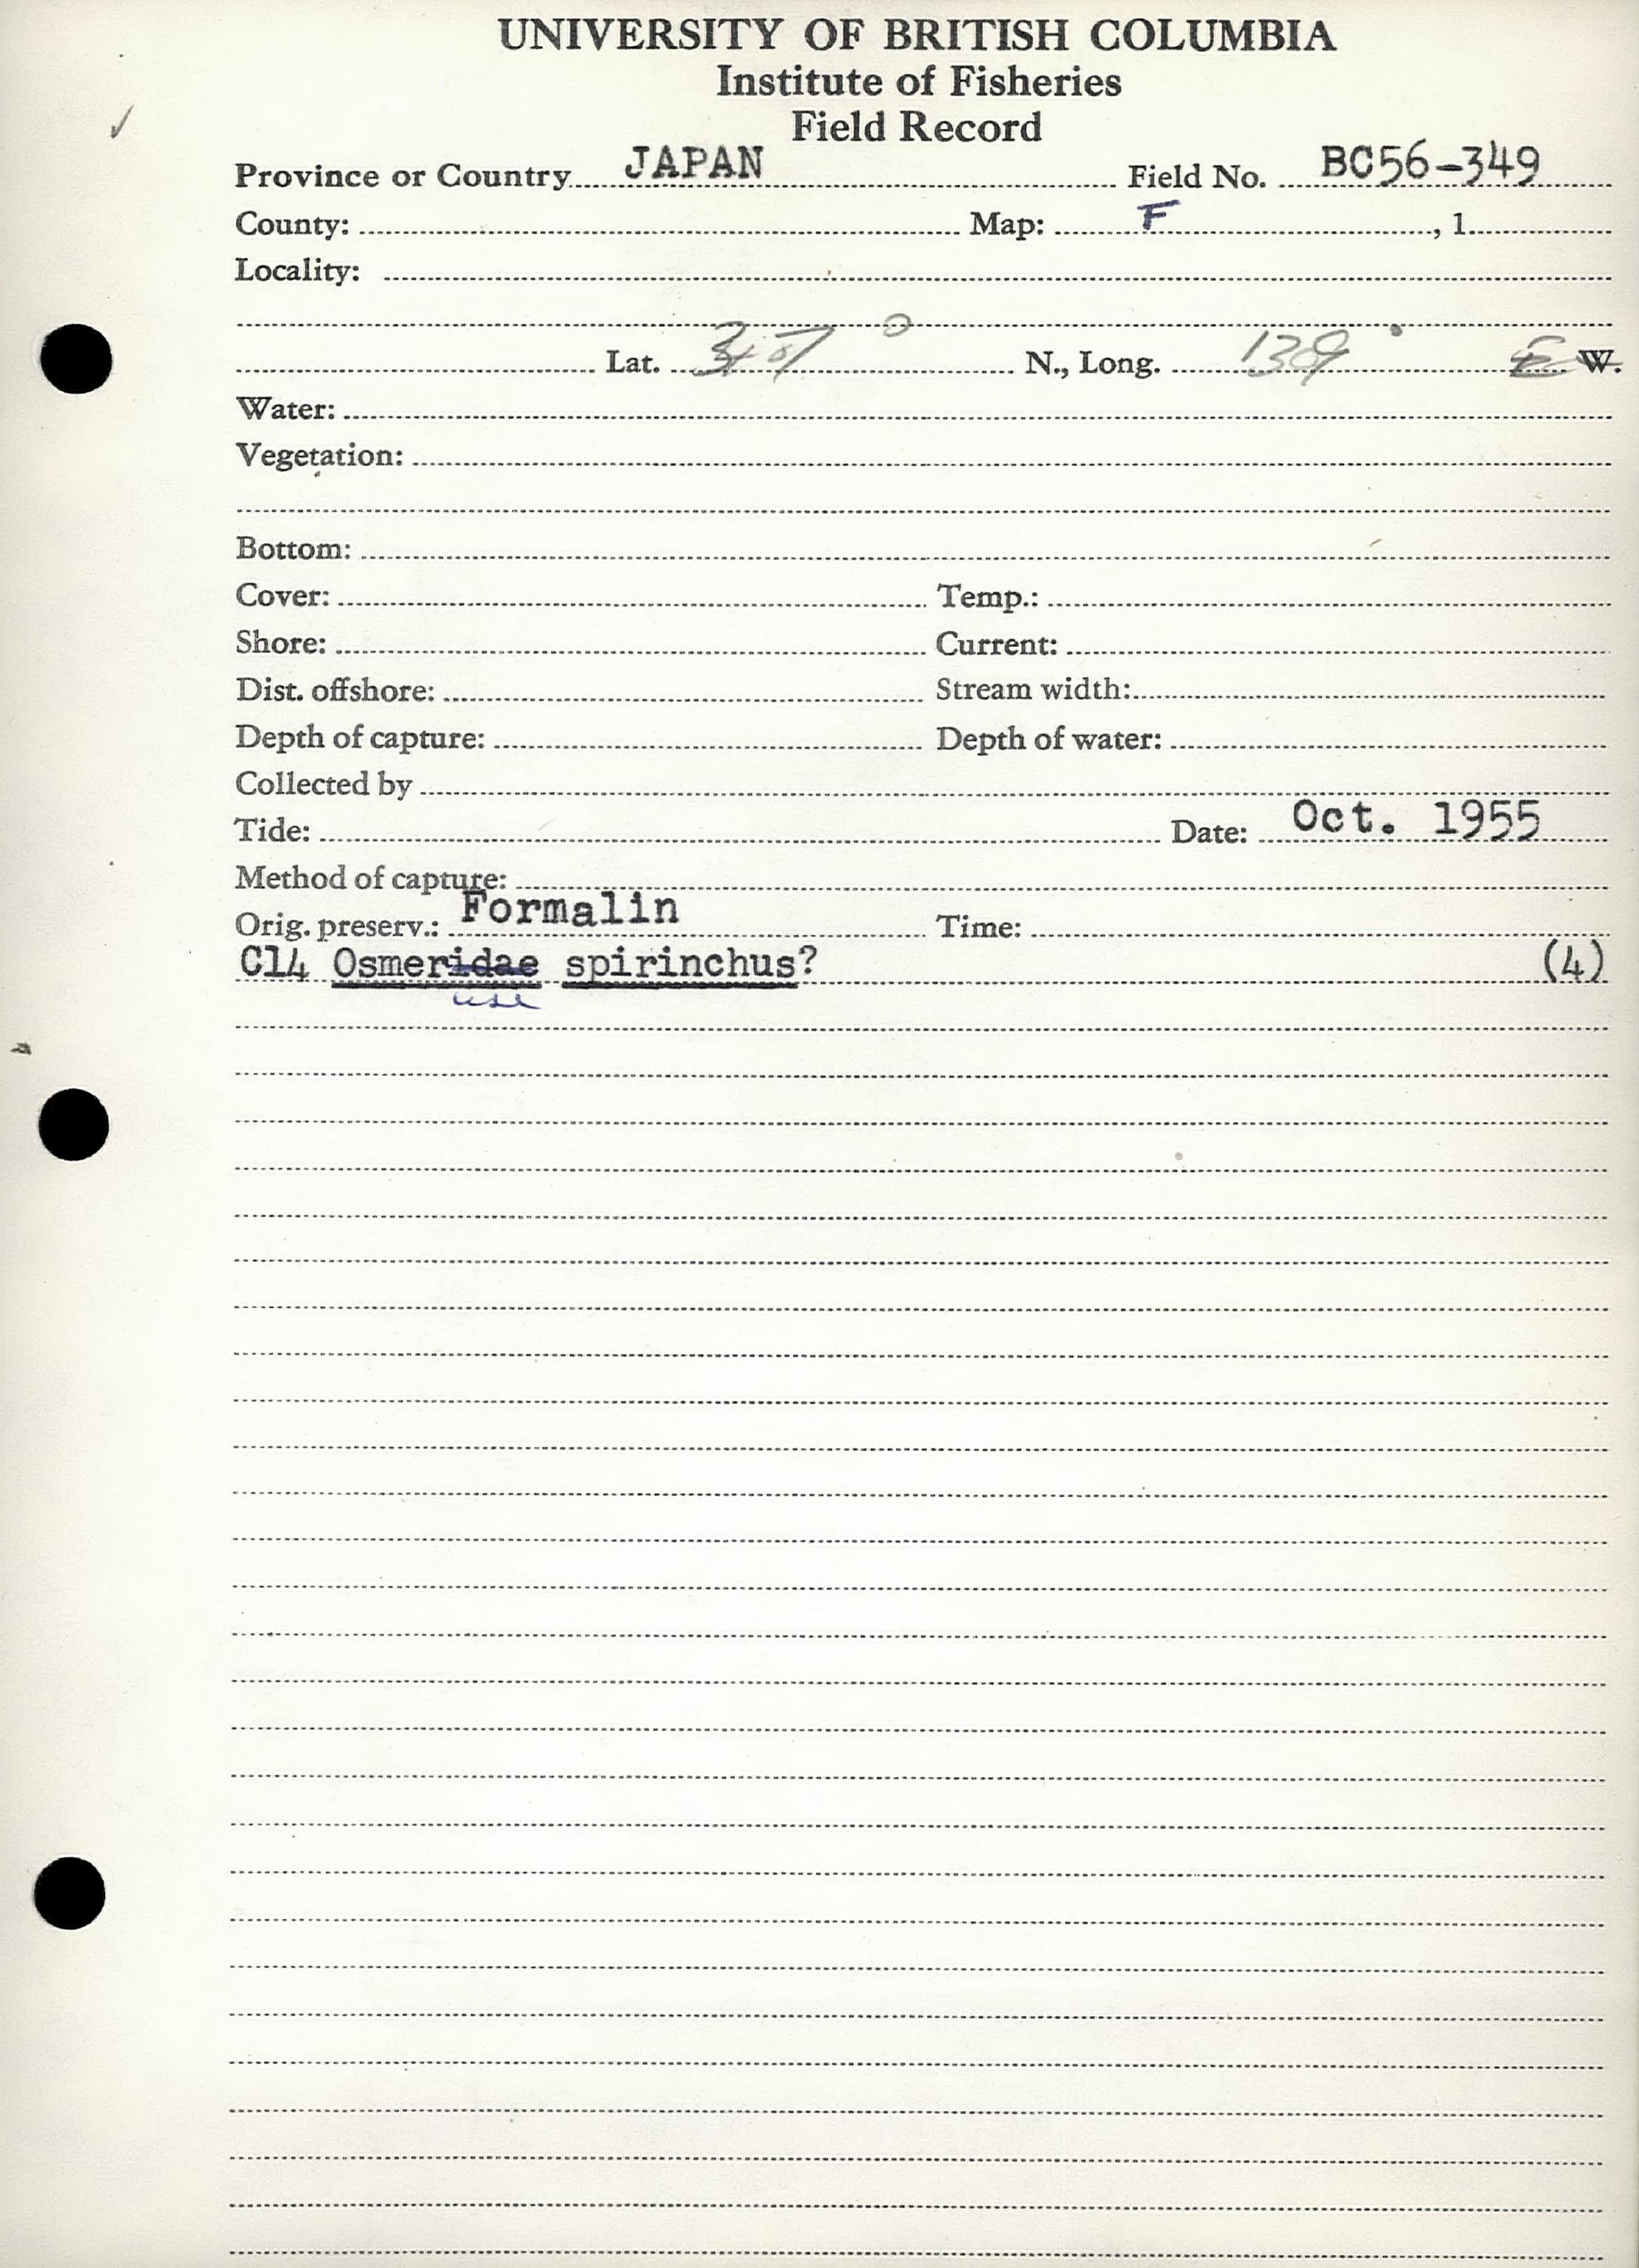 UNIVERSITY OF BRITISH COLUMBIA
Institute of Fisheries
Field Record
Province or Country JAPAN Field No. BC56-349
County: Map: F , 1
Locality:
Lat. ° N., Long. 139° E W.
Water:
Vegetation:
Bottom:
Cover: Temp.:
Shore: Current:
Dist. offshore: Stream width:
Depth of capture: Depth of water:
Collected by
Tide: Date: Oct. 1955
Method of capture:
Orig. preserv.: Formalin Time:
C14 Osmeridae spirinchus? (4)